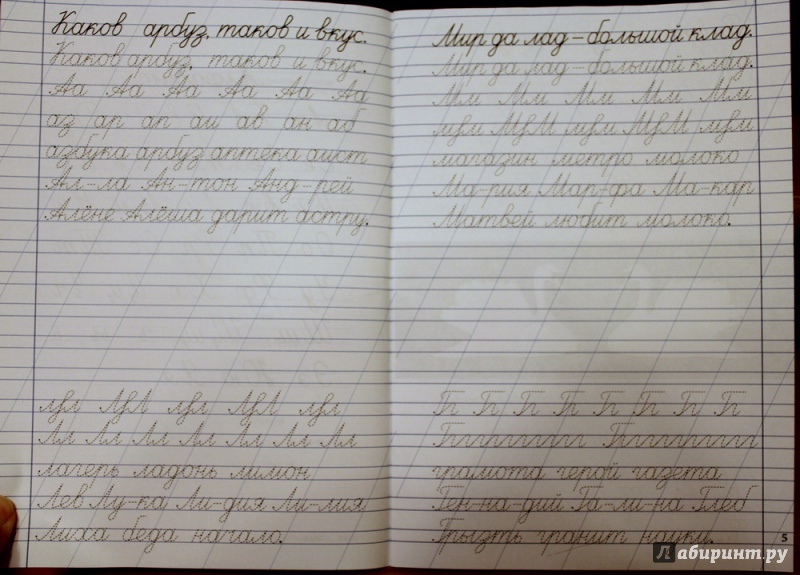 Каков арбуз, таков и вкус.
Каков арбуз, таков и вкус.
Аа Аа Аа Аа Аа Аа
аз ар ап аи ав ан аб
азбука арбуз аптека аист
Ал-ла Ан-тон Анд-рей
Алёне Алёша дарит астру.
лул ЛуЛ лул ЛуЛ лул
Лл Лл Лл Лл Лл Лл Лл
лагерь ладонь лимон
Лев Лу-ка Ли-дия Ли-лия
Лиха беда начало.
Мир да лад – большой клад.
Мир да лад – большой клад.
Мм Мм Мм Мм Мм
мум МуМ мум МуМ мум
магазин метро молоко
Ма-рия Мар-фа Ма-кар
Матвей любит молоко.
Г Г Г Г Г Г Г Г
Гггггггггг Гггггггггг
грамота герой газета
Ген-на-дий Га-ли-на Глеб
Грызть гранит науки.
5
Лабиринт.ру